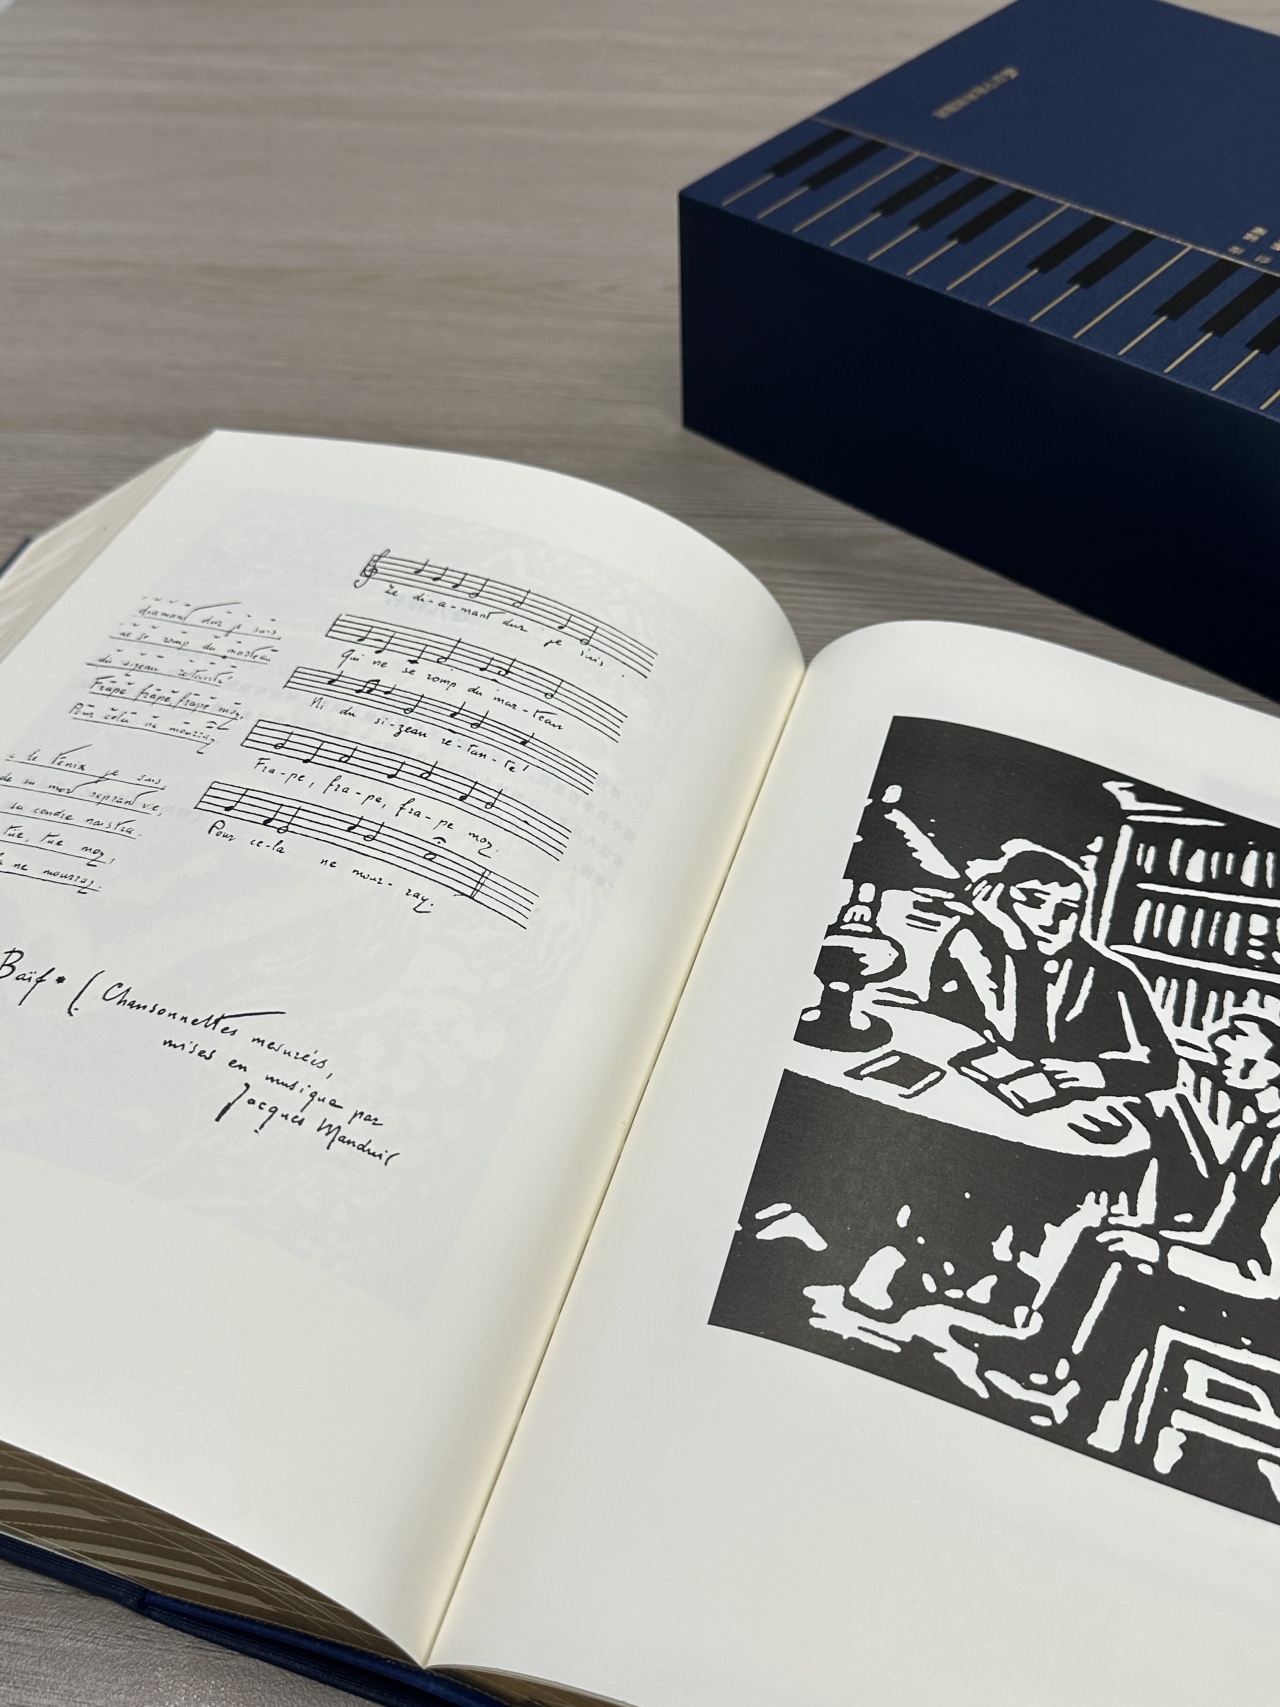 Le di-a-mant dur je suis
Qui ne se romp du mar-teau
Ni du si-zeau re-tan-té!
Fra-pe, fra-pe, fra-pe moy.
Pour ce-la ne mour-ray.
diamant dur je suis
ne se romp du marteau
du sizeau retanté
Frapé, frapé, frapé moy,
Pour cela ne mourray
le fénix je suis,
de sa mort reprant vie,
sa cendre naistra.
tüe, tue moy,
ne mourray.
Baïf * (Chansonnettes mesurées,
mises en musique par
Jacques Manduit